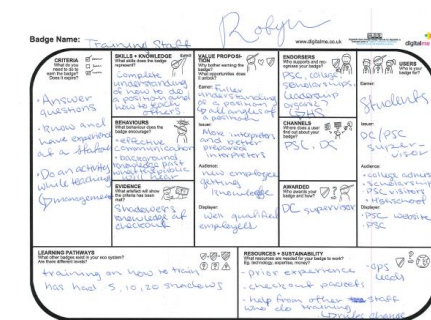 Robyn
Badge Name: Training Staff
www.digitalme.co.uk
digitalme
CRITERIA
What do you need to do to earn the badge?
Does it expire?
• Answer questions
• Know and have experience at a station
• Do an activity while teaching
management
SKILLS + KNOWLEDGE
What skills does the badge represent?
Complete understanding of how to do a position and how to teach others
BEHAVIOURS
What behaviour does the badge encourage?
• effective communication
• background knowledge past what audience will hear
EVIDENCE
What artefact will show the criteria has been met?
Shadower's knowledge of checkout
VALUE PROPOSITION
Why bother earning the badge?
What opportunities does it unlock?
Earner: Fuller understanding of a position, of all angles of a position
Issuer:
More interpretors and better prepared interpretors
Audience:
new employee gaining knowledge
Displayer:
well qualified employees
ENDORSERS
Who supports and recognises your badge?
PSC, college scholarships, leadership organis.
CHANNELS
Where does a user find out about your badge?
PSC • OC
AWARDED
Who awards your badge and how?
OC supervisor
USERS
Who is your badge for?
Earner:
Students
Issuer:
OC/PSC supervisor
Audience:
• college admiss
• scholarship
• PSC visitors
• Highschool
Displayer:
• PSC website
• PSC
LEARNING PATHWAYS
What other badges exist in your eco system?
Are there different levels?
training on how to train
has had 5, 10, 20 shadows
RESOURCES + SUSTAINABILITY
What resources are needed for your badge to work?
Eg. technology, expertise, money?
- prior experience
- checkout packets
- help from other staff who do training
- ops leads
rules change